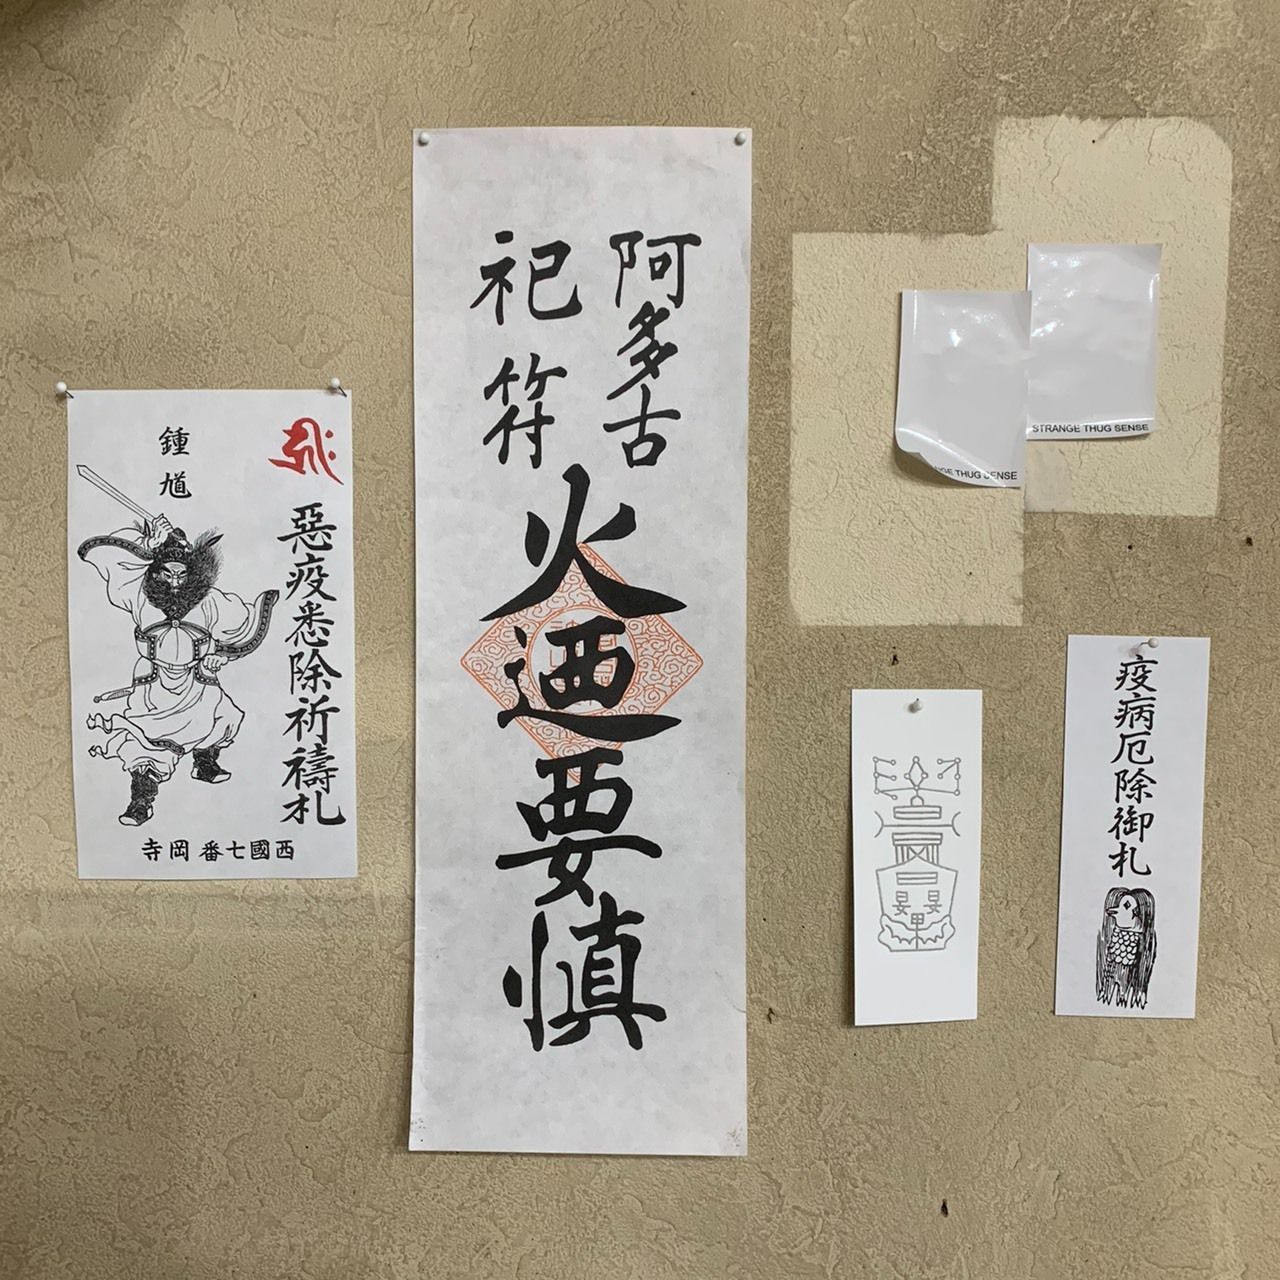 鍾馗
惡疫悉除祈禱札
西國七番岡寺
阿多古
祀符
火迺要慎
STRANGE THUG SENSE
THUG SENSE
疫病厄除御札